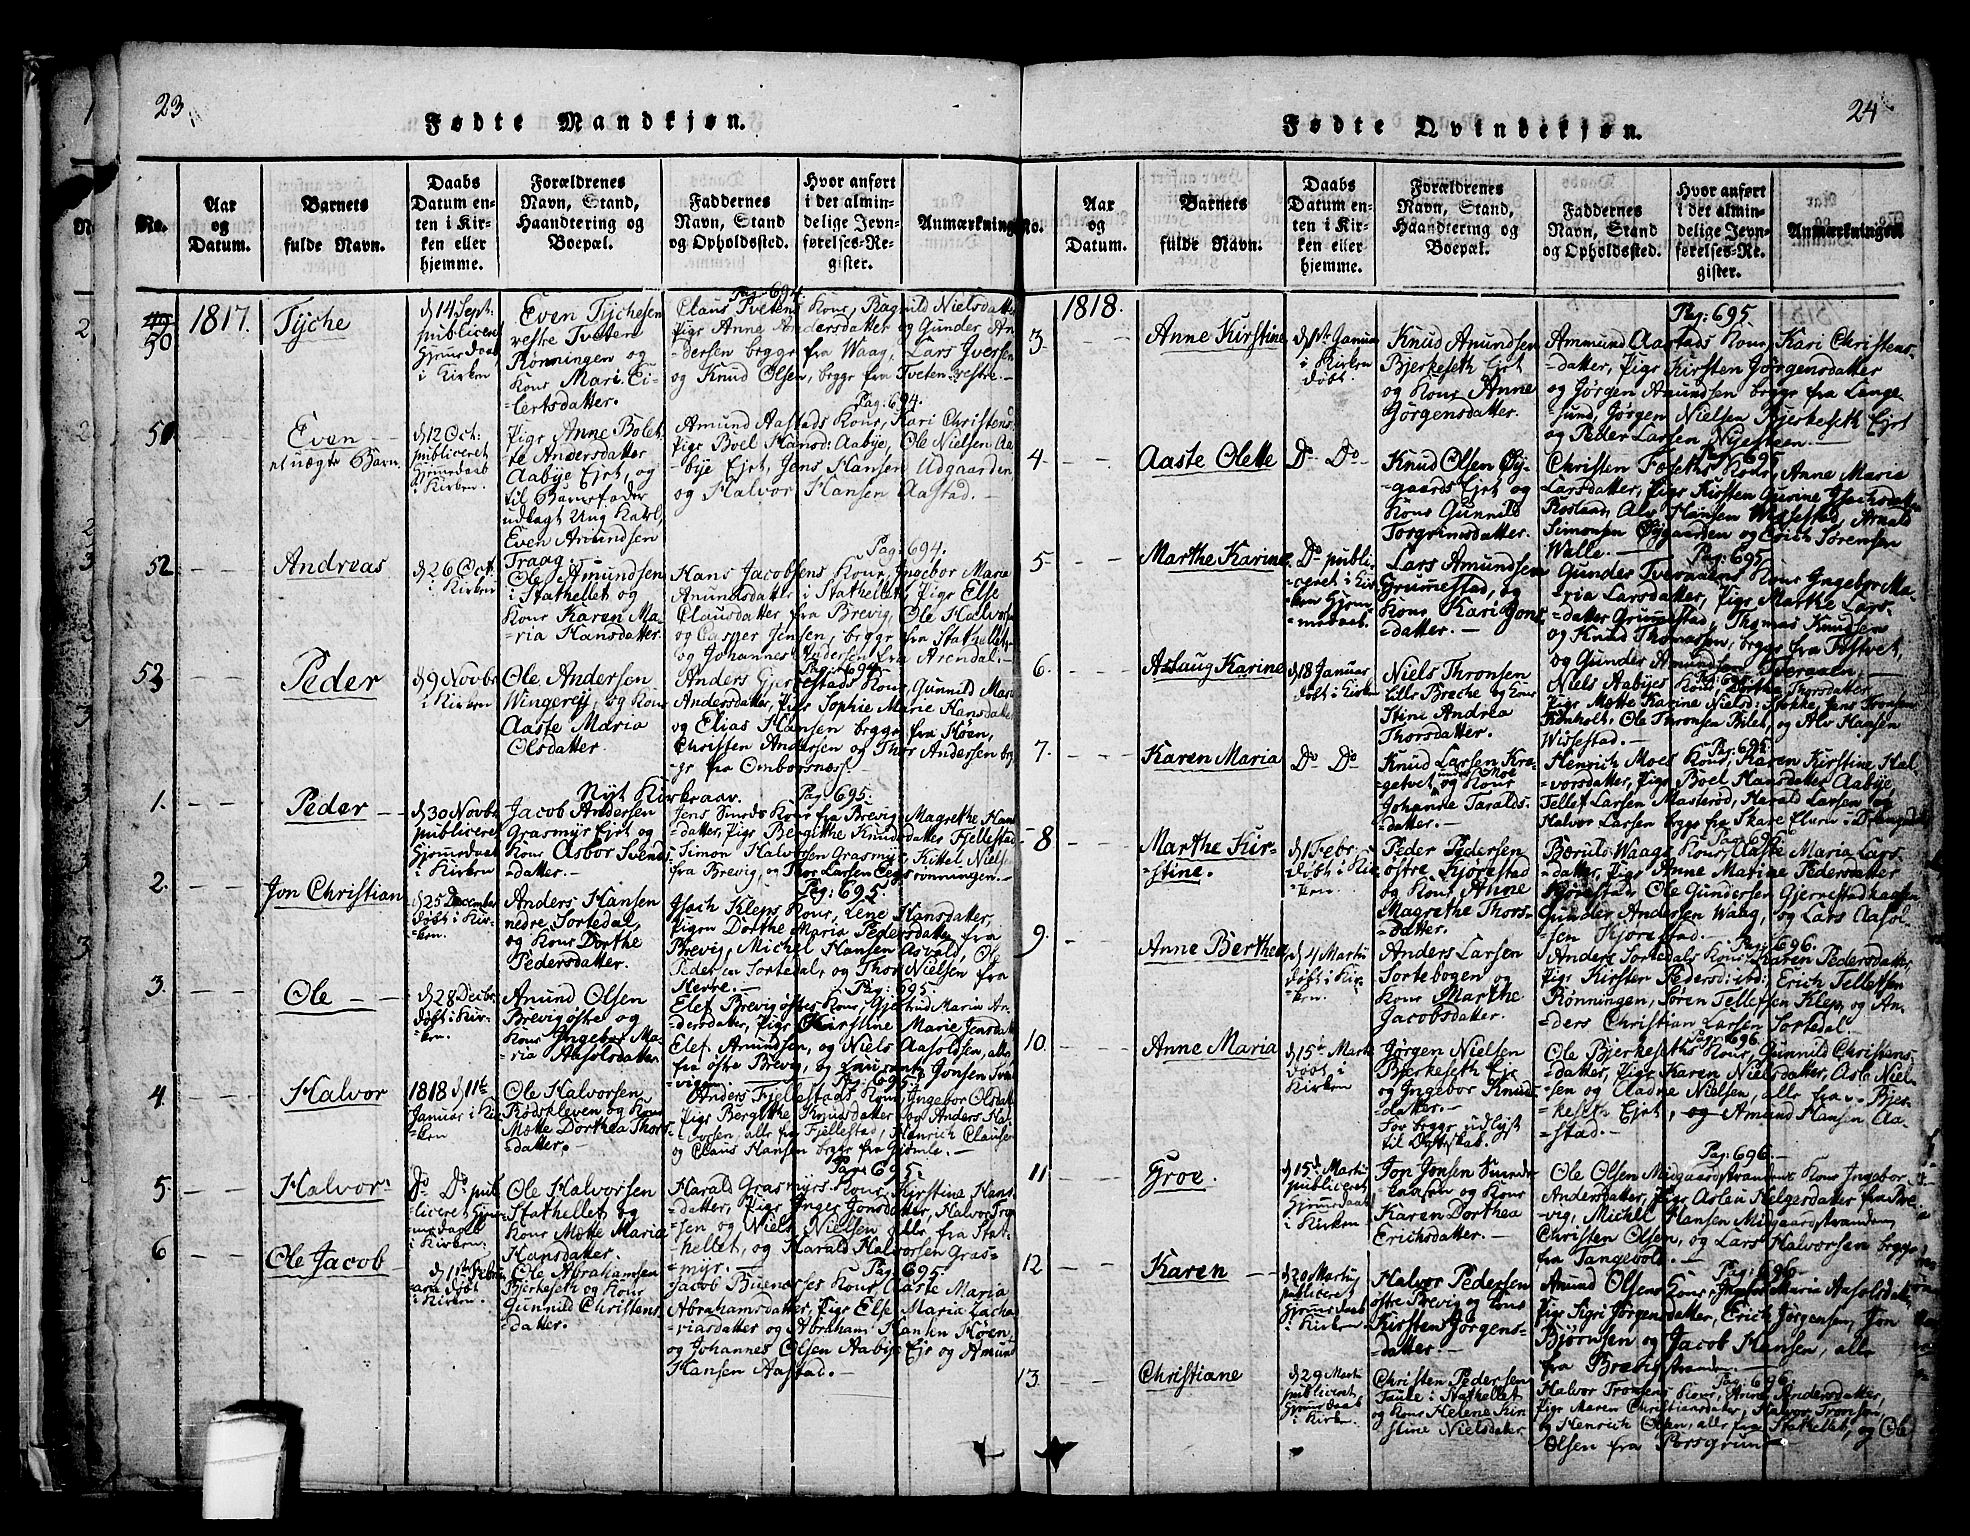 23
Fødte Mandkjøn.
No.
Aar og Datum.
Barnets fulde Navn.
Daabs Datum enten i Kirken eller hjemme.
Forældrenes Navn, Stand, Haandtering og Boepæl.
Faddernes Navn, Stand og Opholdssted.
Hvor anført i det almindelige Jevnførelses-Register.
Anmærkning
50
1817.
Tyche
d 14 Sept.
publiceret
Hjemedaab
i Kirken
Even Tychesen
vestre Tveten
Rønningen og
Kone Mari Ei-
lertsdatter.
Pag: 694.
Claus Tvetens Kone, Ragnild Nielsdatter
Pige Anne Andersdatter og Gunder An
dersen begge fra Waag, Lars Iversen
og Knud Olsen, begge fra Tveten vestre.
51
Even
et uægte Barn.
d 12 Oct:
publiceret
Hjemedaab
i Kirken.
Pige Anne Bolet
te Andersdatter
Aabye Ejet, og
til Barnefader
udlagt Ung Karl,
Even Amundsen
Traag.
Pag: 694.
Amund Aastads Kone, Kari Christens
Pige Boel Hansd: Aabye, Ole Nielsen Aa-
bye Ejet, Jens Hansen Udgaarden
og Halvor Hansen Aastad.
52
Andreas
d 26 Oct.
i Kirken
Ole Amundsen
i Stathellet og
Kone Karen Ma-
ria Hansdatter.
Pag: 694.
Hans Jacobsens Kone, Ingebor Maria
Amundsdatter i Stathellet, Pige Else
Clausdatter fra Brevig, Ole Halvors
og Casper Jensen, begge fra Stathellet,
og Johannes Pedersen fra Arendal.
53
Peder
d 9 Novbr
i Kirken
Ole Andersen
Wingerej, og Kone
Aaste Maria
Olsdatter.
Pag: 694.
Anders Gjernestads Kone, Gunnild Marie
Andersdatter, Pige Sophie Marie Hansdatter
og Elias Hansen begge fra Høen,
Christen Andersen og Thor Andersen beg
ge fra Omborsnes.
Nyt Kirkeaar.
1.
Peder
d 30 Novbr
publiceret
Hjemedaab
i Kirken
Jacob Andersen
Grasmyr Ejet og
Kone Asbor Svends
datter.
Pag: 695.
Jens Sunds Kone fra Brevig, Magrethe Han
datter, Pige Bergithe Knudsdatter Fjellestad
Simon Halvorsen Grasmyr, Kittel Niels
fra Brevig, og Thor Larsen Eegsrønningen.
2.
Jon Christian
d 25 December
døbt i Kir-
ken.
Anders Hansen
nedre Sortedal,
og Kone Dorthe
Pedersdatter.
Pag: 695.
Isach Kleps Kone, Lene Hansdatter,
Pigen Dorthe Maria Pedersdatter fra
Brevig, Michel Hansen Asvald, Ole
Pedersen Sortedal, og Thor Nielsen fra
Herre.
3.
Ole
d 28 Decbr.
døbt i Kir-
ken.
Amund Olsen
Brevig østre og
Kone Ingebor Ma-
ria Aasoldsdatter
Pag: 695.
Elef Brevig østres Kone, Gjertrud Maria An-
dersdatter, Pige Kirstine Marie Jensdatter
Elef Amundsen, og Niels Aasoldsen, alle
fra østre Brevig, og Laurants Jonsen
4.
Halvor
1818 d 11te
Januar i Kir
ken
Ole Halvorsen
Rødskleven og Kone
Mette Dorthea Thors
datter.
Pag: 695.
Anders Fjellestads Kone, Ingebor Olsdatter
Pige Bergithe Knudsdatter og Anders Hal
vorsen, alle fra Fjellestad, Henrich Clausen
og Claus Hansen begge fra Gjømle.
5.
Halvor
Do Do pub
liceret Hjem-
medaab
i Kirken
Ole Halvorsen
Stathellet og
Kone Mette Maria
Hansdatter.
Pag: 695.
Harald Grasmyrs Kone, Kirstine Hans-
datter, Pige Inger Jonsdatter, Halvor Torge
sen og Niels Nielsen, alle fra Stat-
hellet, og Harald Halvorsen Gras-
myr.
6
Ole Jacob
d 1te Febru
arii døbt
i Kirken.
Ole Abrahamsen
Bjerkeseth og Kone
Gunnild Christens
datter.
Pag: 695.
Jacob Kone, Aaste Maria
Abrahamsdatter, Pige Else Maria Zacha-
riasdatter og Abraham Hansen Høen,
og Johannes Olsen Aabye Eje og Amund
Hansen Aastad.
24
Fødte Qvindekjøn.
No.
Aar og Datum.
Barnets fulde Navn.
Daabs Datum enten i Kirken eller hjemme.
Forældrenes Navn, Stand, Haandtering og Boepæl.
Faddernes Navn, Stand og Opholdssted.
Hvor anført i det almindelige Jevnførelses-Register.
Anmærkninger
1818.
3
Anne Kirstine
d 1ste Januar
i Kirken
døbt.
Knud Amundsen
Bjerkeseth Ejet
og Kone Anne
Jørgensdatter.
Pag: 695
Ammund Aastads Kone, Kari Christens-
datter, Pige Kirsten Jørgensdatter
og Jørgen Amundsen begge fra Lange
sund, Jørgen Nielsen Bjerkeseth Ejet
og Peder Larsen Nyesteen.
4
Aaste Olette
Do Do
Knud Olsen Øy-
gaards Ejet og
Kone Gunnild
Torgrimsdatter.
Pag: 695
Christen Foseths Kone, Anne Maria
Larsdatter, Pige Kirsten Gurine Isachsdatter
Rostaa, Alv Hansen Wissestad, Arnold
Simonsen Øygaarden og Erich Sørensen
Walle.
5.
Marthe Karine
Do publi-
ceret i Kir
ken Hjem-
medaab.
Lars Amundsen
Grummestad, og
Kone Kari Jons
datter.
Pag: 695
Gunder Tveraaens Kone Ingebor Ma-
ria Larsdatter, Pige Marthe Lars-
datter Grummestad, Thomas Knudsen
og Knud Thomasen, begge fra Tostvet,
og Gunder Amundsen Tveraaen.
6.
Aslaug Karine
d 18 Januar
døbt i Kirken
Niels Thronsen
Lille Brekke og Kone
Stine Andrea
Thorsdatter.
Niels Aabyes Kone, Dorthe Thorsdatter
Pige Mette Karine Nielsd: Stokke, Jens Tronsen
Ole Thronsen Bilet, og Alv Haasen
Wissestad.
7.
Karen Maria
Do Do
Knud Larsen Kro-
getvet under Moe
og Kone
Johanne Taralds-
datter.
Pag: 695.
Henrich Moes Kone, Karen Kirstine Hal-
vorsdatter, Pige Boel Hansdatter Aabye,
Tellef Larsen Masterød, Harald Larsen og
Halvor Larsen begge fra Skare flurn i Drangedal
8
Marthe Kir-
stine.
d 1 Febr
døbt i Kir
ken.
Peder Pedersen
østre Kjørestad
og Kone Anne
Magrethe Thors-
datter.
Pag: 696
Bærulv Waags Kone, Aaste Maria Lars-
datter, Pige Anne Martine Pedersdatter
Kjørestad, Ole Gundersen Gjernestadhaugen,
Gunder Andersen Waag, og Lars Aasol-
sen Kjørestad.
9.
Anne Berthea
d 4 Martii
døbt i Kir-
ken.
Anders Larsen
Sortebogen og
Kone Marthe
Jacobsdatter.
Pag: 696.
Anders Sortedals Kone Karen Pedersdatter,
Pige Kirsten Pedersd: ibd; Erich Tellefsen
Rønningen, Søren Tellefsen Klep, og An-
ders Christian Larsen Sortedal.
10.
Anne Maria
d 15de Marti
døbt i
Kirken
Jørgen Nielsen
Bjerkeseth Eje
og Ingebor Knuds
datter.
For begge udlyst
til Ægteskab.
Pag: 696.
Ole Bjerkeseths Kone, Gunnild Christens-
datter, Pige Karen Nielsdatter, Asle Niel-
sen og Aadne Nielsen, alle fra Bjer-
keseth Ejet, og Amund Hansen Aa-
stad.
11
Groe.
d 15de Martii
publiceret
Hjemedaab
i Kirken
Jon Jonsen Sunde-
aasen og Kone
Karen Dorthea
Erichsdatter.
Pag: 696.
Ole Olsen Midgaardstrandens Kone Ingebor
Andersdatter, Pige Aslau Helgesdatter fra Bre
vig, Michel Hansen Midgaardstranden,
Christen Olsen, og Lars Halvorsen begge
fra Tangevold.
12
Karen
d 20 Martii
publiceret
Hjemedaab
i Kirken
Halvor Pedersen
østre Brevig og Kone
Kirsten Jørgens-
datter.
Pag: 696.
Amund Olsens Kone, Ingebor Maria Aasolsdatter,
Pige Sigri Jørgensdatter, Erich Jørgensen, Jon
Bjørnsen og Jacob Hansen, alle
fra Brevigstranden.
13.
Christiane
d 29 Marti
publiceret
Hjemedaab
i Kirken.
Christen Pedersen
Taule i Stathellet
og Kone Helene Kir
stine Nielsdatter
Pag: 696.
Halvor Tronsens Kone, Anne Andersdatter,
Pige Maren Christiansdatter, Halvor Tronsen
og Henrich Olsen, alle fra Stathellet, og Ole
Olsen fra Porsgrund